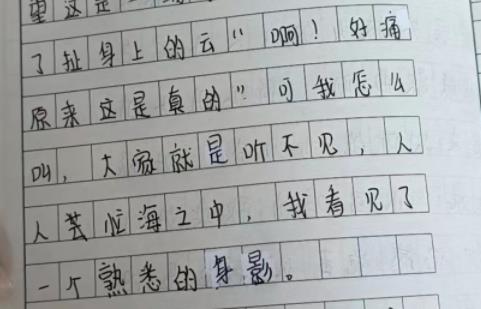 望这是一
了扯身上的云“啊！好痛
原来这是真的”可我怎么
叫，大家就是听不见，人
人芸忙海之中，我看见了
一个熟悉的身影。